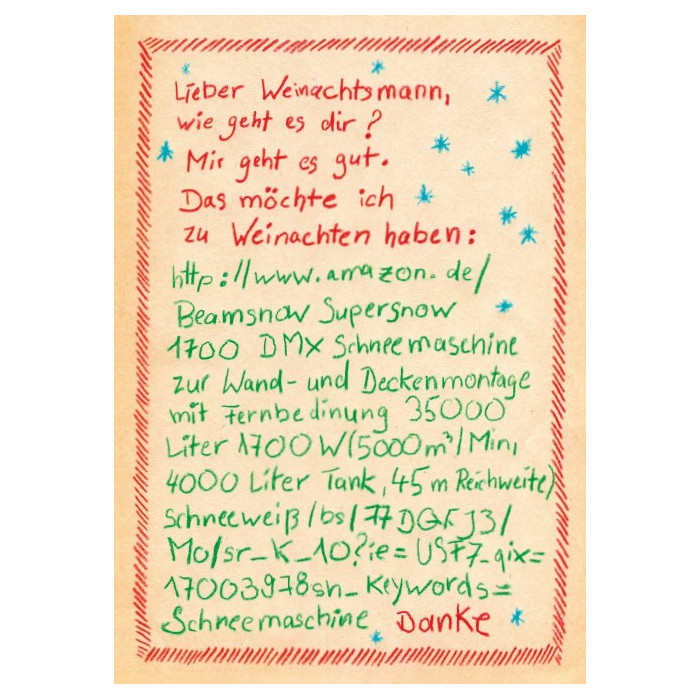 Lieber Weinachtsmann,
wie geht es dir?
Mir geht es gut.
Das möchte ich
zu Weinachten haben:
http://www.amazon.de/
Beamsnow Supersnow
1700 DMX Schneemaschine
zur Wand- und Deckenmontage
mit Fernbedinung 35000
Liter 1700W(5000m³/Min,
4000 Liter Tank, 45m Reichweite)
Schneeweiß/bs/
Mo/sr_K_10?ie=
17003978sn_Keywords=
Schneemaschine Danke